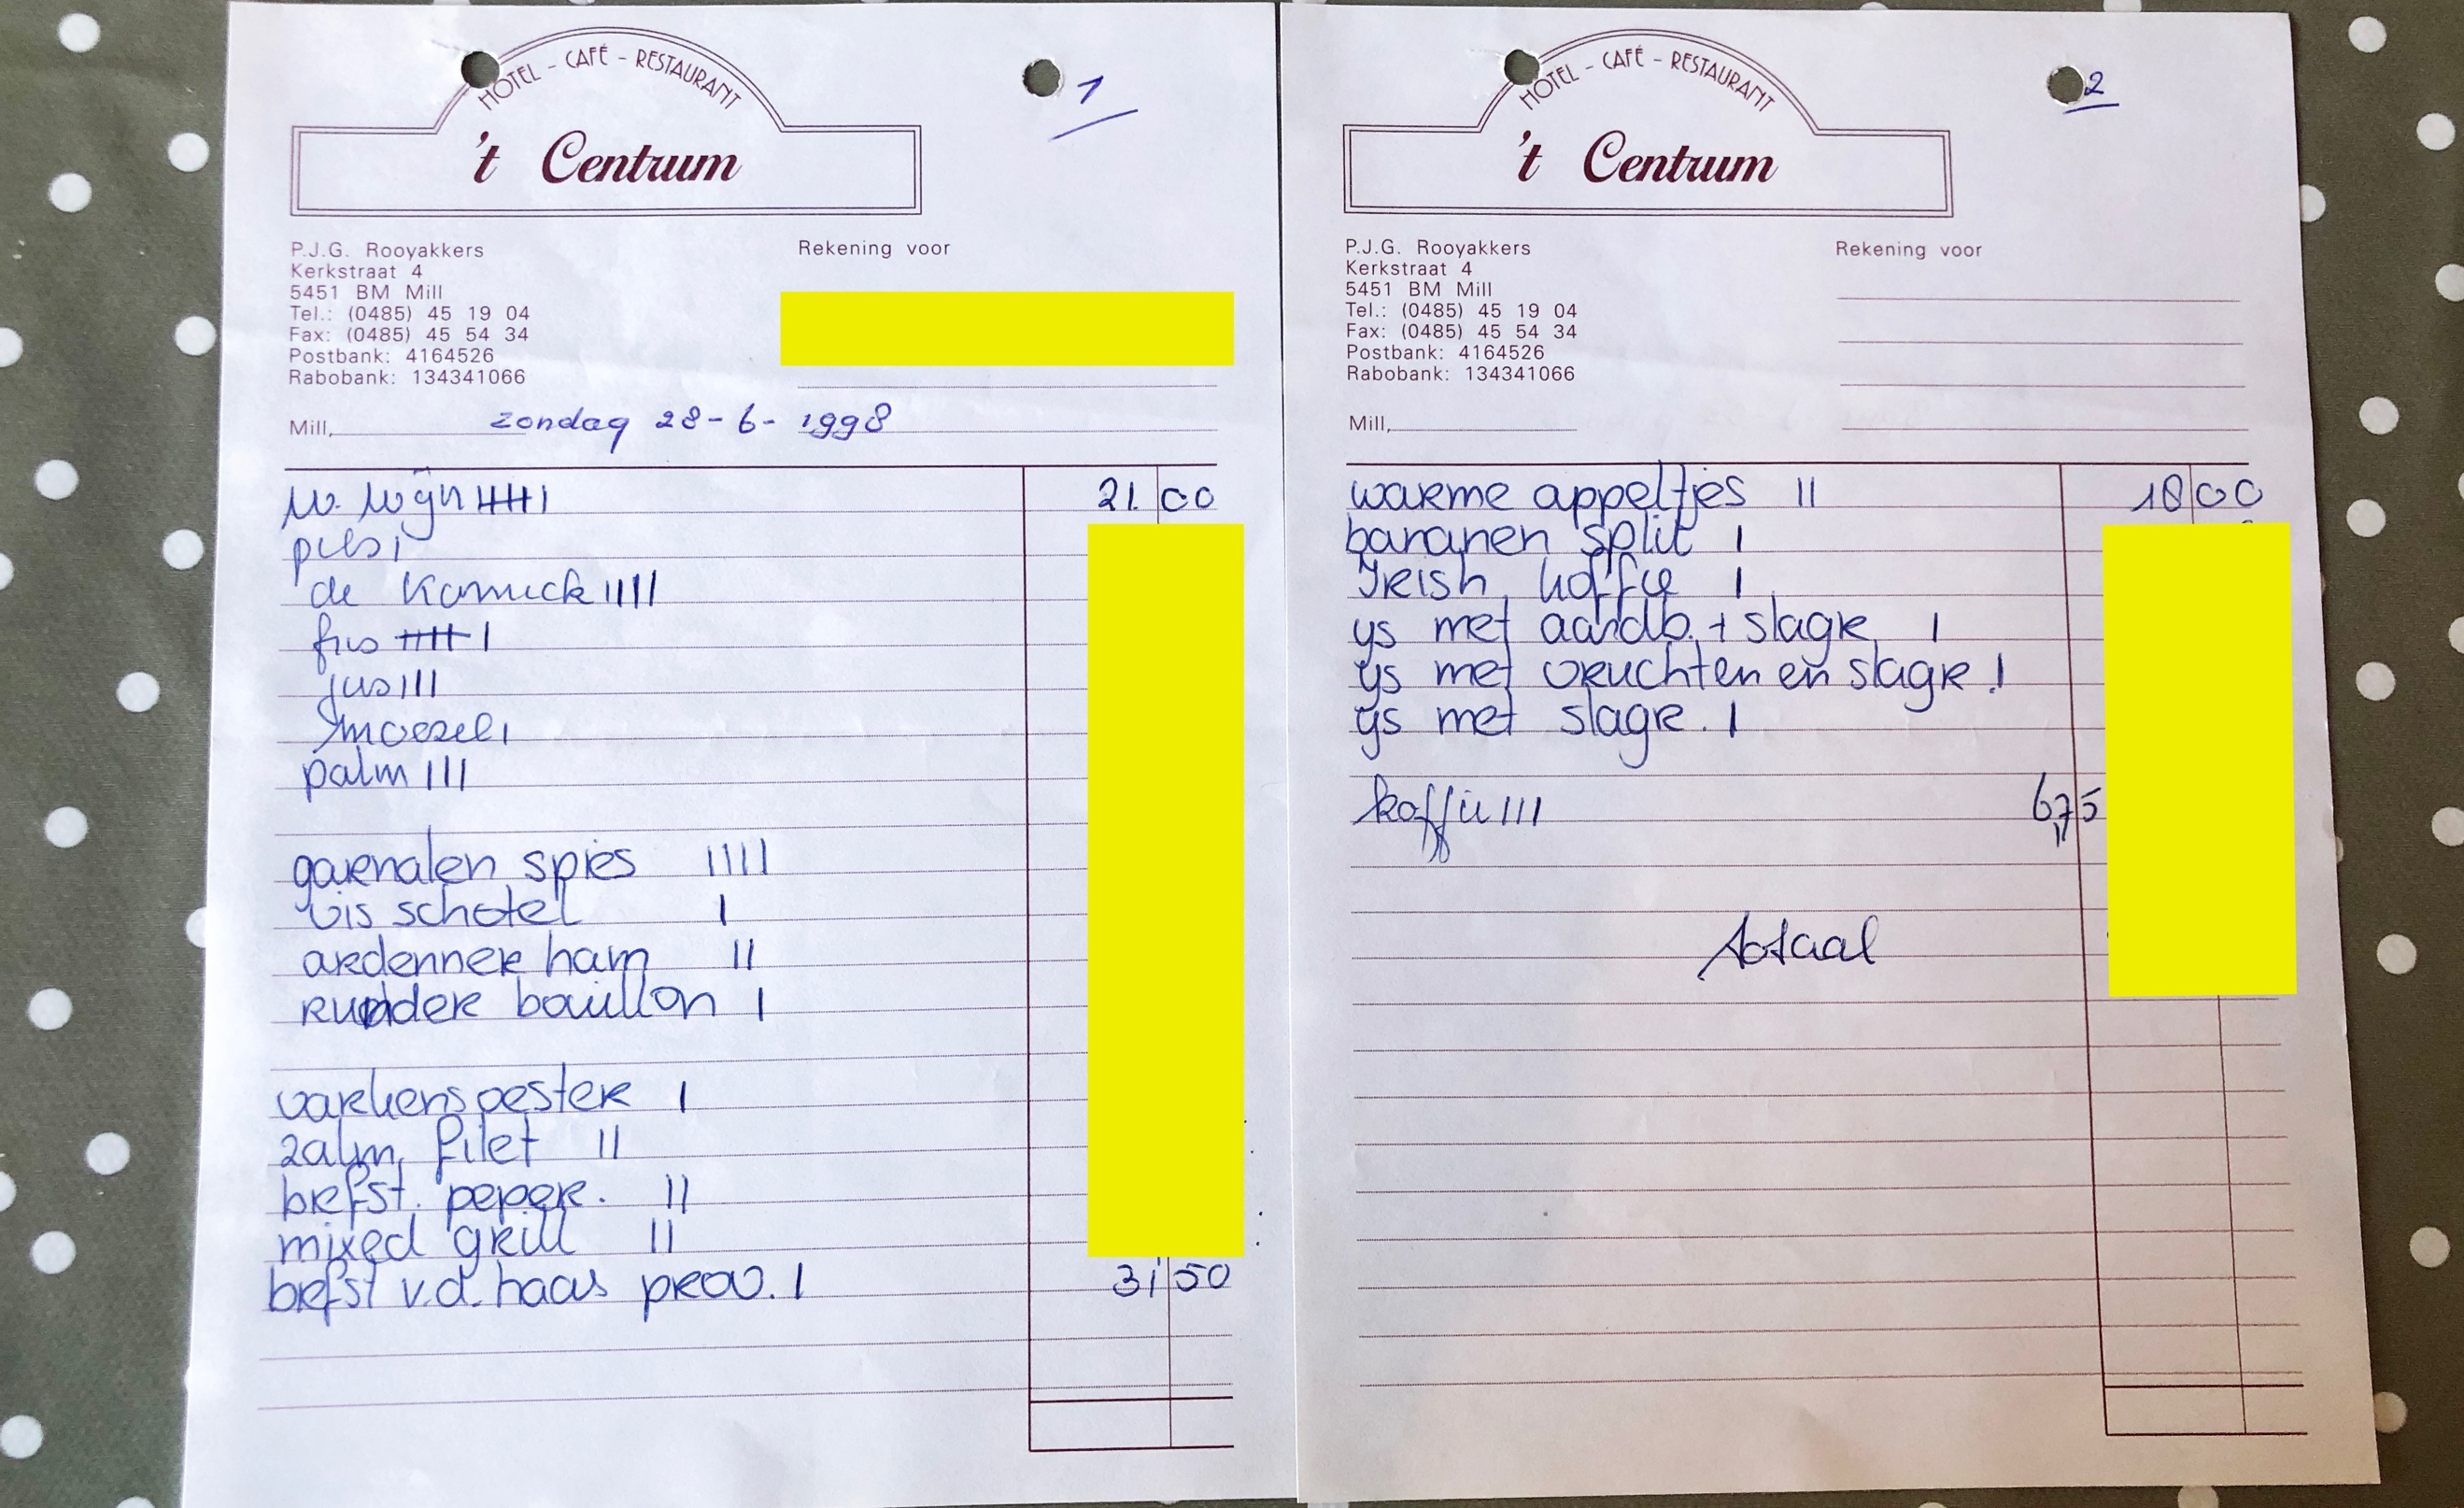 HOTEL - CAFÉ - RESTAURANT
't Centrum
1
P.J.G. Rooyakkers
Kerkstraat 4
5451 BM Mill
Tel.: (0485) 45 19 04
Fax: (0485) 45 54 34
Postbank: 4164526
Rabobank: 134341066
Rekening voor
Mill, zondag 28-6-1998
w. wijn IIIII I 21.00
pils I
de Konnick IIII
fris IIIII I
jus III
moezel I
palm III
garnalen spies IIII
vis schotel I
ardenner ham II
runder bouillon I
varkens oester I
zalm filet II
biefst. peper. II
mixed grill II
biefst v.d. haas prov. I 31 50
HOTEL - CAFÉ - RESTAURANT
't Centrum
2
P.J.G. Rooyakkers
Kerkstraat 4
5451 BM Mill
Tel.: (0485) 45 19 04
Fax: (0485) 45 54 34
Postbank: 4164526
Rabobank: 134341066
Rekening voor
Mill,
warme appeltjes II 18 00
bananen split I
Irish koffie I
ys met aardb. + slagr. I
ys met vruchten en slagr. I
ys met slagr. I
koffie III 6,75
totaal